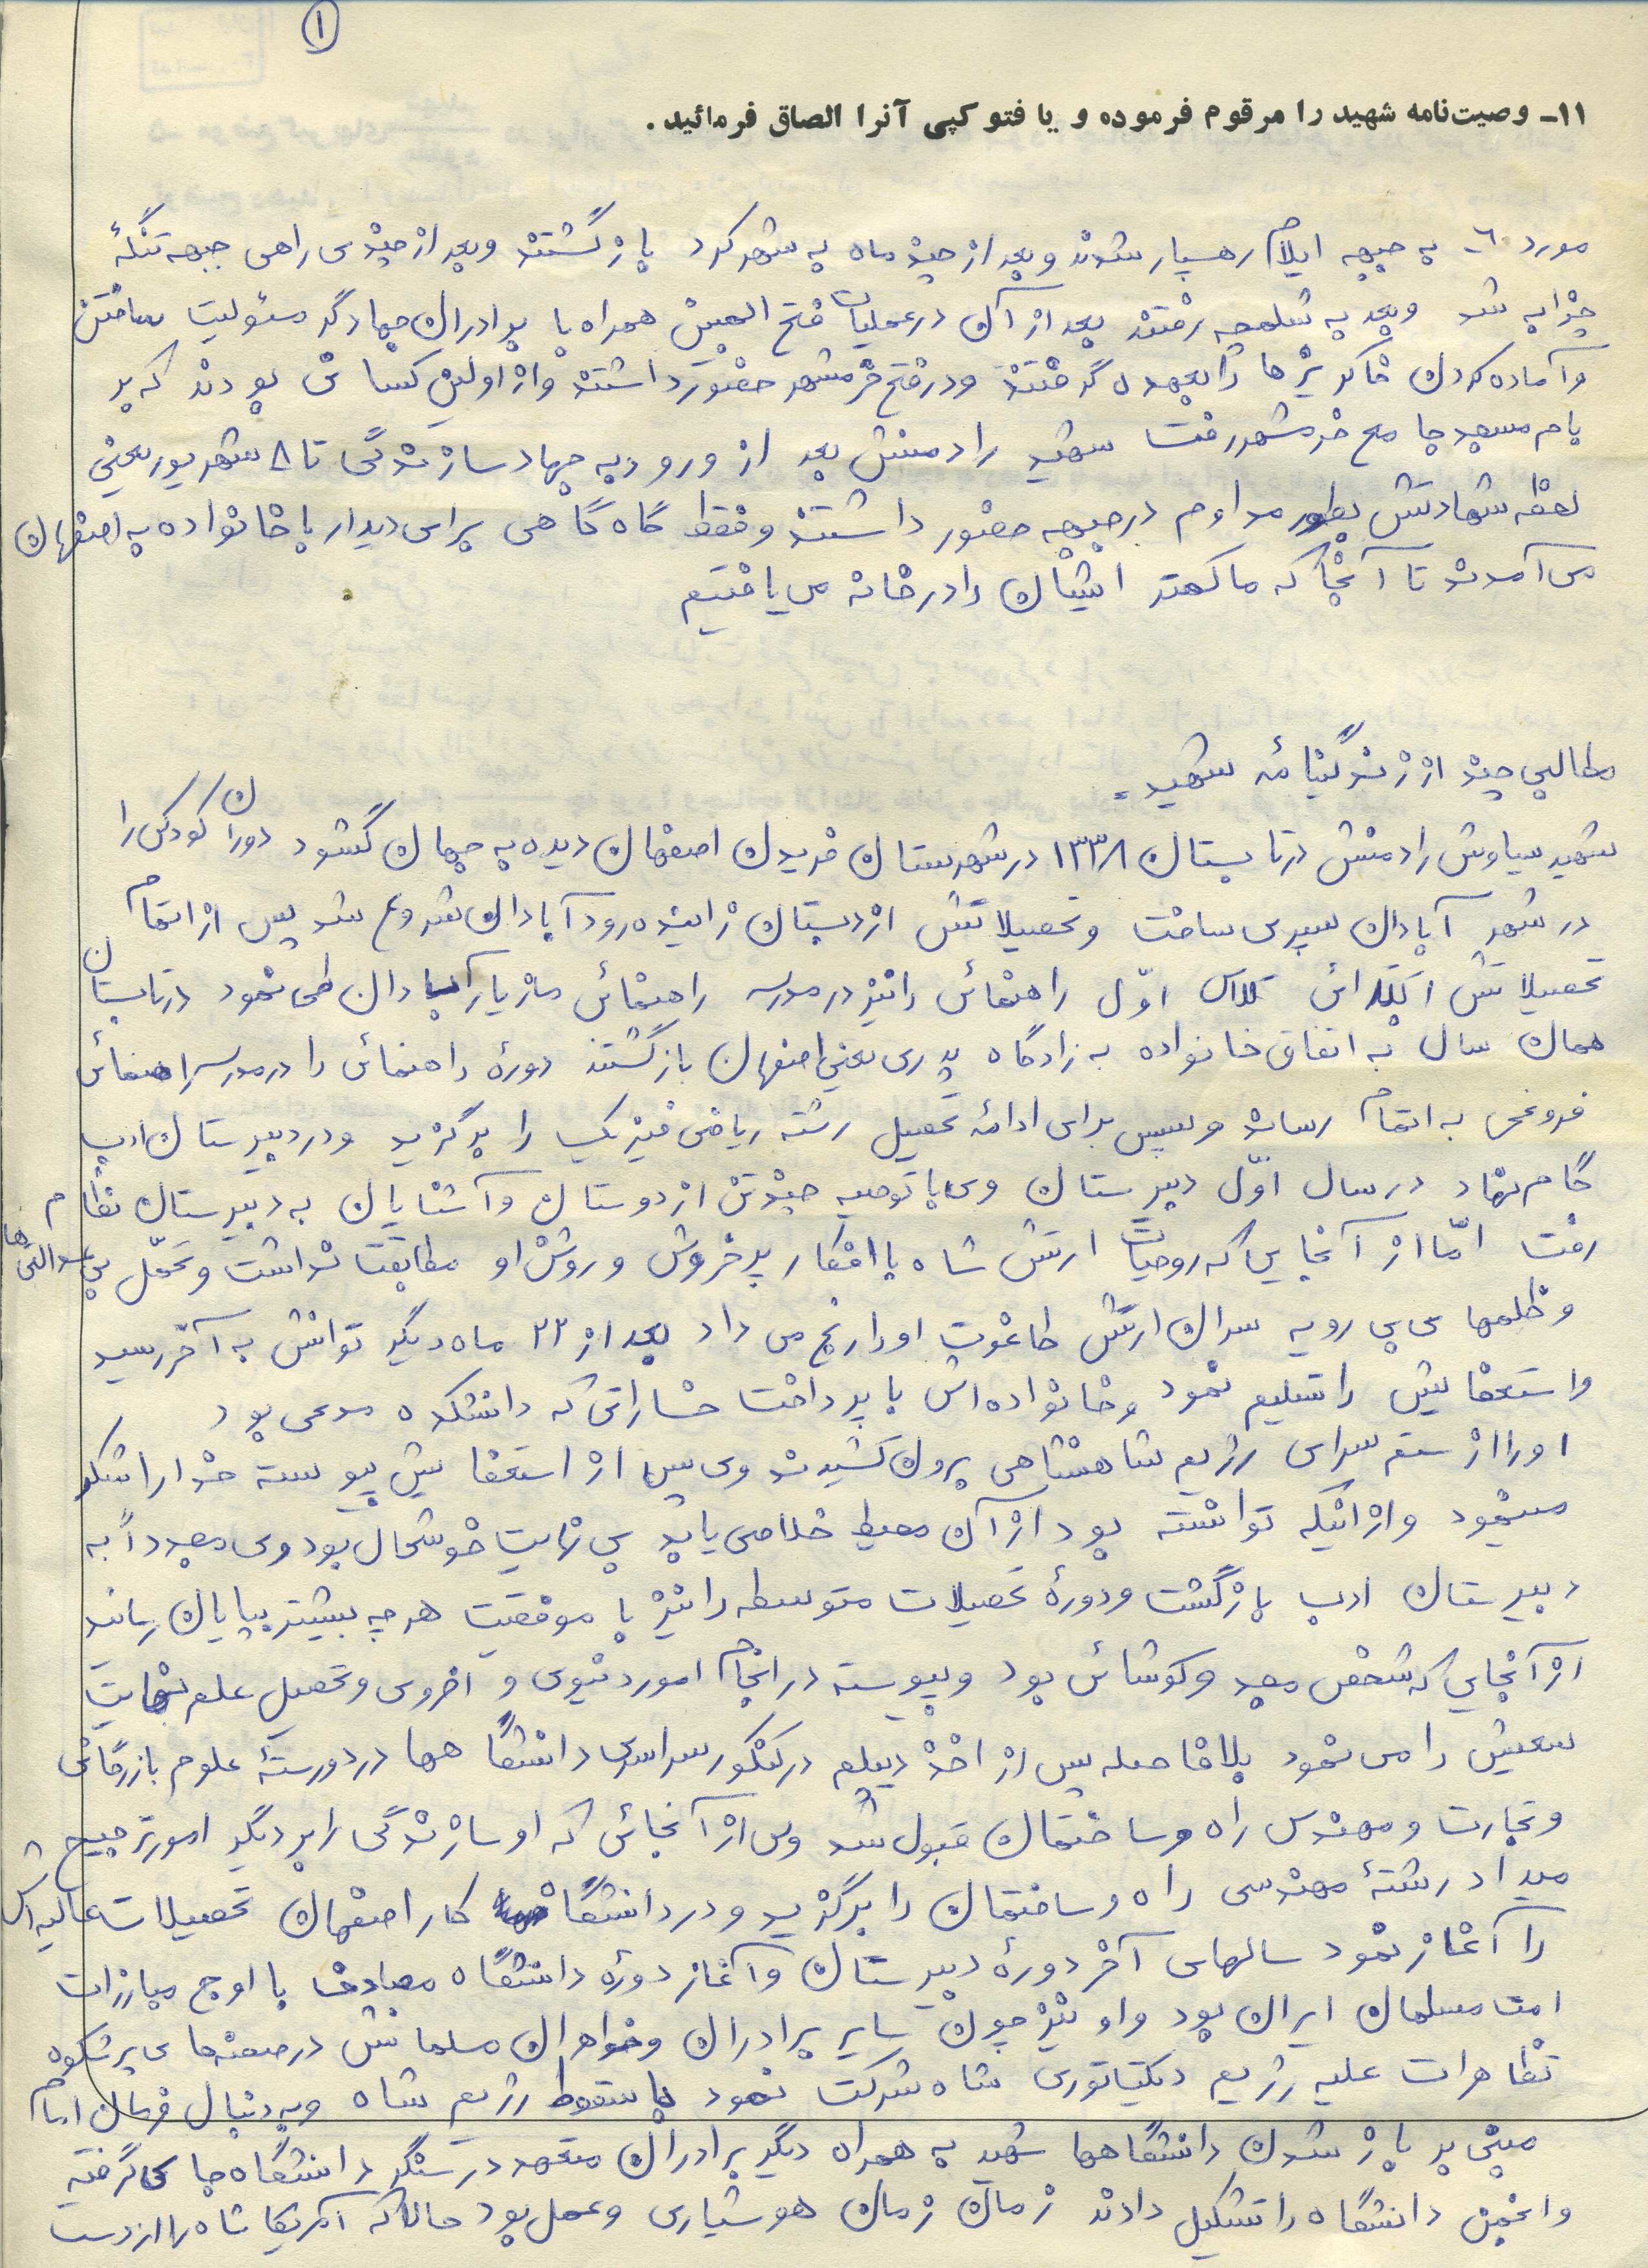 ۱
۱۱ـ وصیت‌نامه شهید را مرقوم فرموده و یا فتوکپی آنرا الصاق فرمائید.
مورد ۶- به جبهه ایلام رهسپار شدند و بعد از چند ماه به شهرکرد بازگشتند و بعد از چندی راهی جبهه تنگهٔ
چزابه شد و بعد به شلمچه رفتند بعد از آن در عملیات فتح المبین همراه با برادران جهادگر مسئولیت ساختن
و آماده کردن خاکریزها را بعهده گرفتند و در فتح خرمشهر حضور داشتند و از اولین کسانی بودند که بر
بام مسجد جامع خرمشهر رفت شهید رادمنش بعد از ورود به جهاد سازندگی تا ۸ شهریور یعنی
لحظه شهادتش بطور مداوم در جبهه حضور داشتند و فقط گاه گاهی برای دیدار با خانواده به اصفهان
می آمدند تا آنجا که ما کمتر ایشان را در خانه می یافتیم
مطالبی چند از زندگینامهٔ شهید
شهید سیاوش رادمنش در تابستان ۱۳۳۸ در شهرستان فریدن اصفهان دیده به جهان گشود دوران کودکی را
در شهر آبادان سپری ساخت و تحصیلاتش از دبستان زاینده رود آبادان شروع شد پس از اتمام
تحصیلاتش ابتدائی کلاس اوّل راهنمائی را نیز در مدرسه راهنمائی مازیار آبادان طی نمود در تابستان
همان سال به اتفاق خانواده به زادگاه پدری یعنی اصفهان بازگشتند دورهٔ راهنمائی را در مدرسه راهنمائی
فروغی به اتمام رساند و سپس برای ادامهٔ تحصیل رشته ریاضی فیزیک را برگزید و در دبیرستان ادب
گام نهاد در سال اوّل دبیرستان وی با توصیه چند تن از دوستان و آشنایان به دبیرستان نظام
رفت امّا از آنجایی که روحیات ارتش شاه با افکار پر خروش و روش او مطابقت نداشت و تحمّل بی عدالتی ها
و ظلمهای بی رویه سران ارتش طاغوت او را رنج می داد بعد از ۲۲ ماه دیگر توانش به آخر رسید
و استعفایش را تسلیم نمود و خانواده اش با پرداخت خساراتی که دانشکده مدعی بود
او را از ستم سرای رژیم شاهنشاهی برون کشیدند وی پس از استعفایش پیوسته خدا را شکر
مینمود و از اینکه توانسته بود از آن محیط خلاصی یابد بی نهایت خوشحال بود وی مجدداً به
دبیرستان ادب بازگشت و دورهٔ تحصیلات متوسطه را نیز با موفقیت هر چه بیشتر بپایان رساند
از آنجایی که شخص مجد و کوشائی بود و پیوسته در انجام امور دنیوی و اخروی و تحصیل علم نهایت
سعیش را می نمود بلافاصله پس از اخذ دیپلم در کنکور سراسری دانشگاهها در دو رستهٔ علوم بازرگانی
و تجارت و مهندسی راه و ساختمان قبول شد ولی از آنجائی که او سازندگی را بر دیگر امور ترجیح
میداد رشتهٔ مهندسی راه و ساختمان را برگزید و در دانشگاه کار اصفهان تحصیلات عالیه اش
را آغاز نمود سالهای آخر دورهٔ دبیرستان و آغاز دورهٔ دانشگاه مصادف با اوج مبارزات
امت مسلمان ایران بود و او نیز چون سایر برادران و خواهران مسلمانش در صحنه های پر شکوه
تظاهرات علیه رژیم دیکتاتوری شاه شرکت نمود با سقوط رژیم شاه و به دنبال فرمان امام
مبنی بر باز شدن دانشگاهها شهید به همراه دیگر برادران متعهد در سنگر دانشگاه جای گرفته
و انجمن دانشگاه را تشکیل دادند زمان زمان هوشیاری و عمل بود حالا که آمریکا شاه را از دست